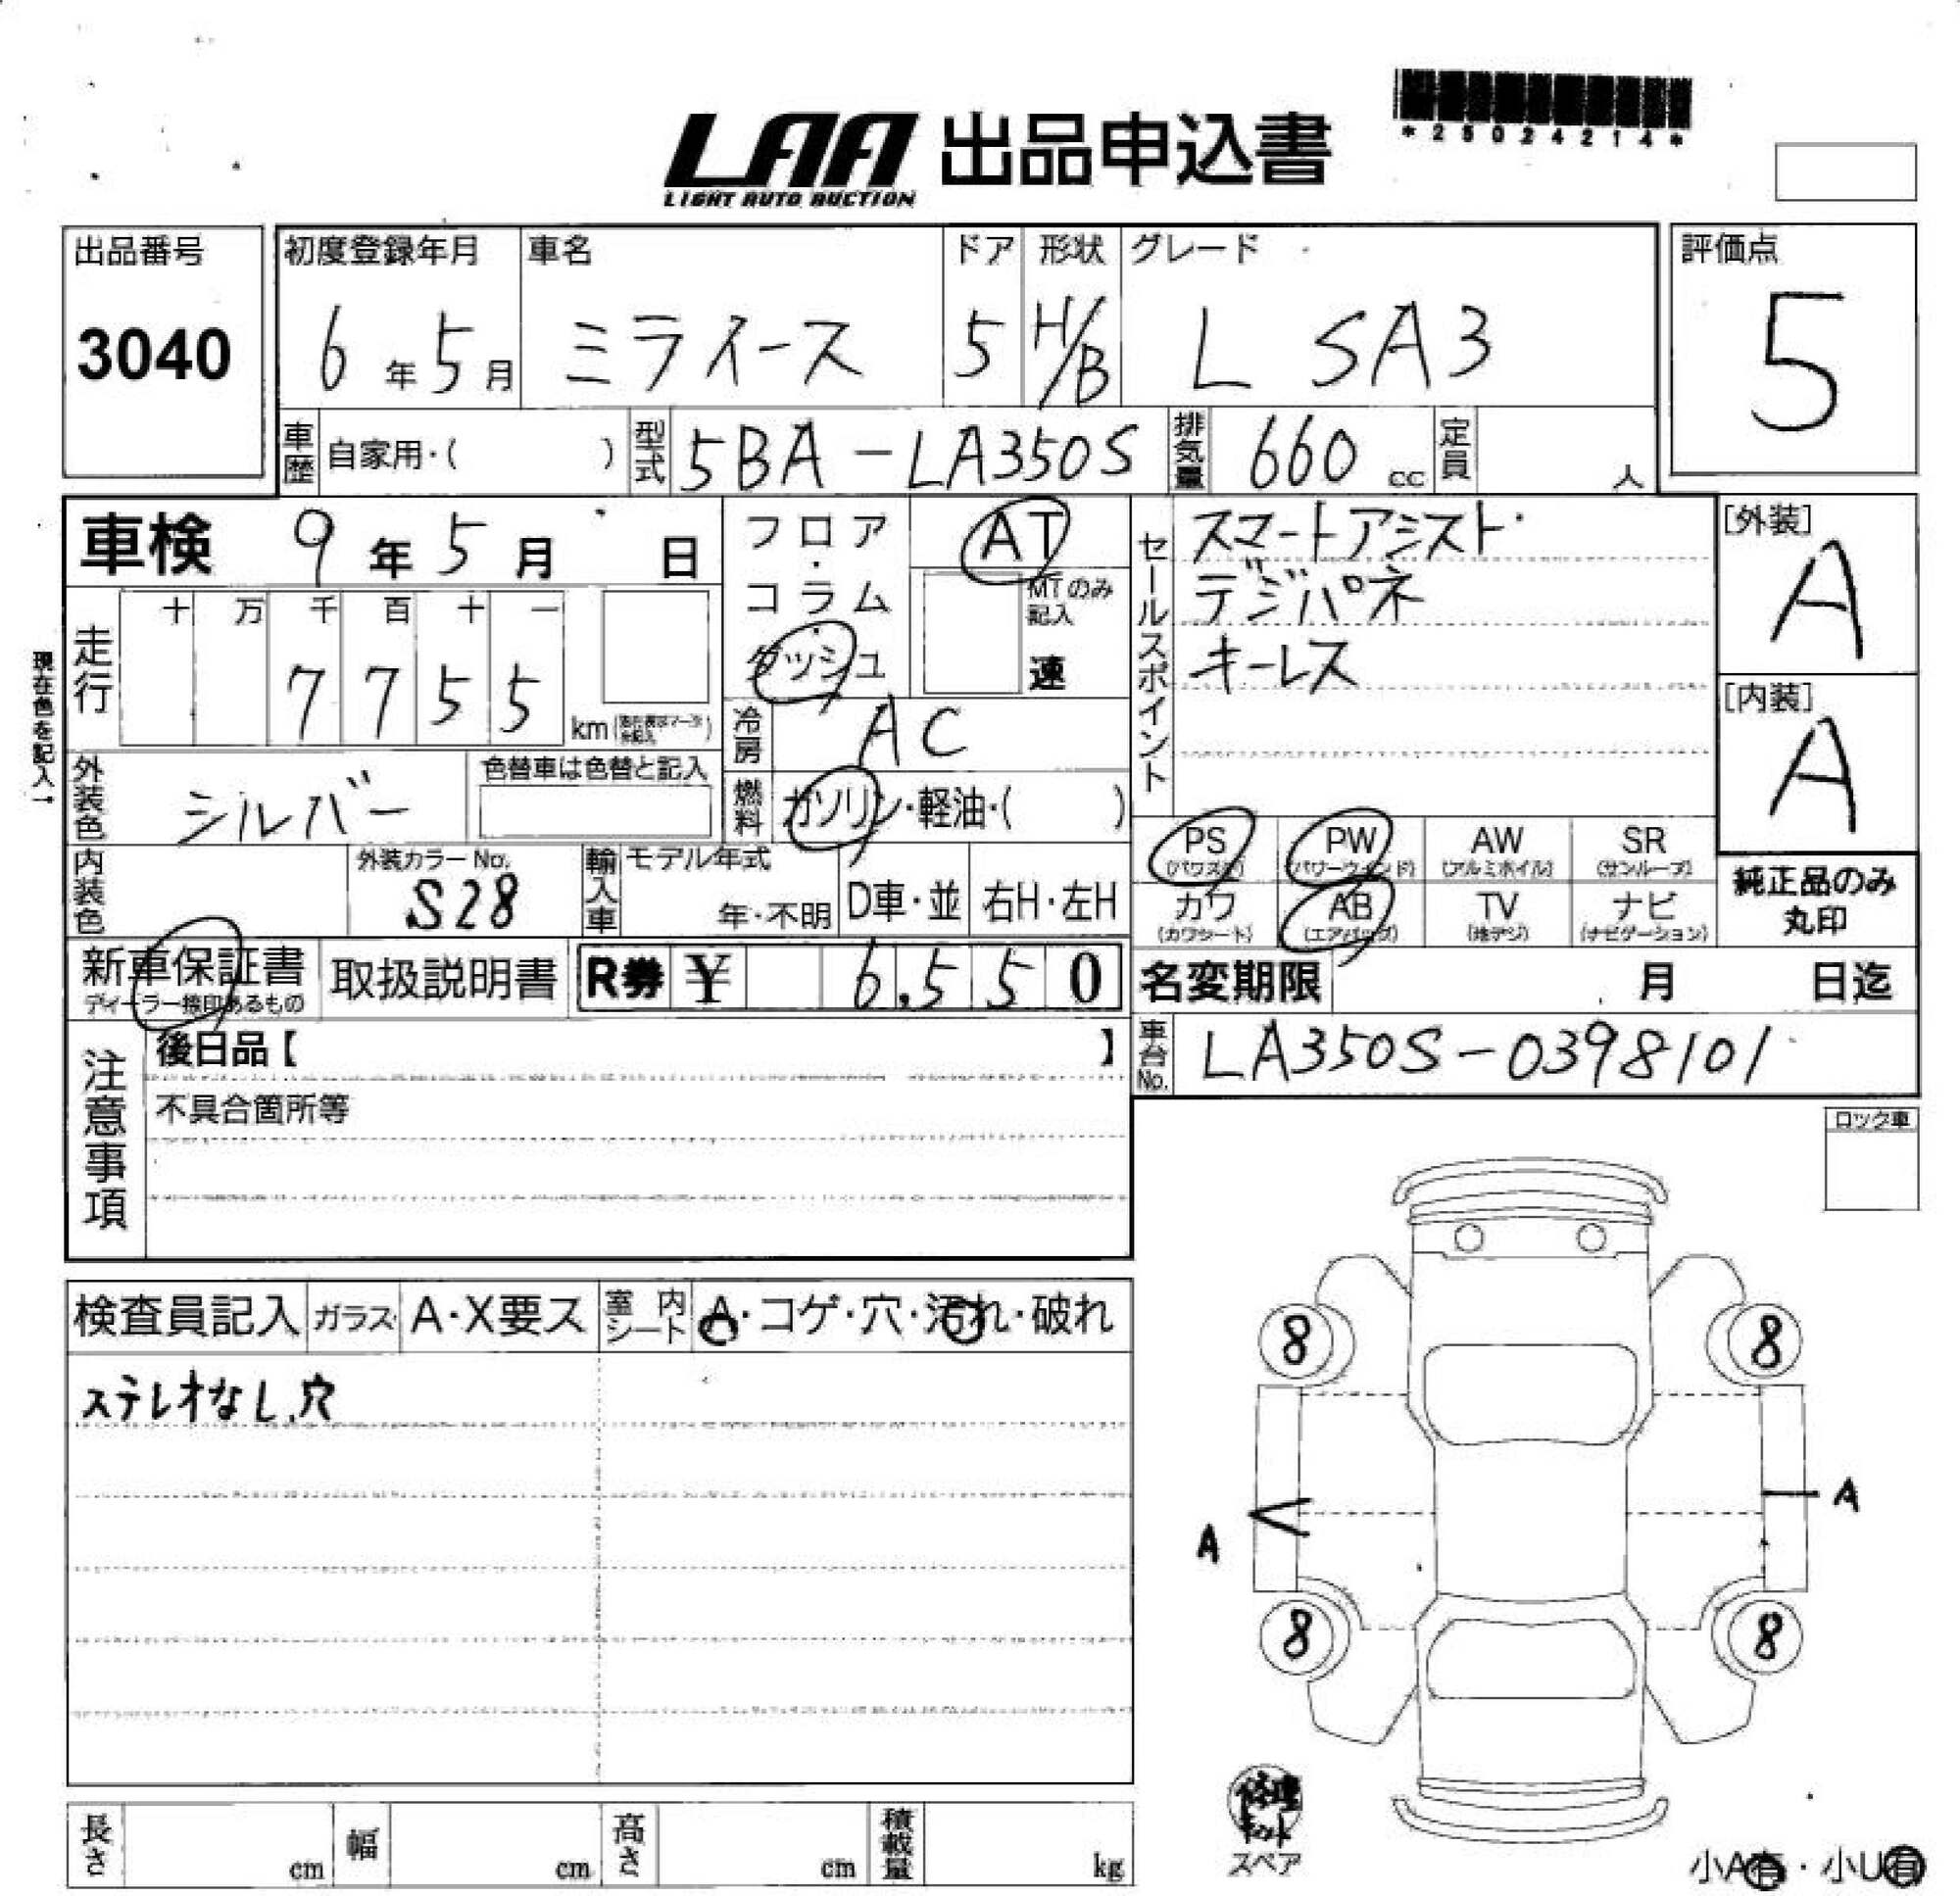 LAA 出品申込書
LIGHT AUTO AUCTION
*25024214*
出品番号
3040
初度登録年月
6年5月
車名
ミライース
ドア
5
形状
H/B
グレード
L SA3
評価点
5
車歴 自家用・( )
型式 5BA-LA350S
排気量 660 cc
定員 人
車検 9年5月 日
フロア・コラム・ダッシュ
AT
MTのみ記入
速
セールスポイント
スマートアシスト
デジパネ
キーレス
[外装]
A
[内装]
A
現在色を記入→
走行
十 万 千 百 十 一
7 7 5 5
km
冷房 AC
燃料 ガソリン・軽油・( )
外装色 シルバー
色替車は色替と記入
内装色
外装カラーNo.
S28
輸入車
モデル年式
年・不明
D車・並
右H・左H
PS (パワステ)
PW (パワーウインド)
AW (アルミホイル)
SR (サンルーフ)
カワ (カワシート)
AB (エアバッグ)
TV (地デジ)
ナビ (ナビゲーション)
純正品のみ
丸印
新車保証書
ディーラー捺印あるもの
取扱説明書
R券 ¥ 6,550
名変期限 月 日迄
車台No. LA350S-0398101
注意事項
後日品【 】
不具合箇所等
ロック車
検査員記入
ガラス A・X要ス
室内シート A・コゲ・穴・汚れ・破れ
ステレオなし、穴
8 8
A
A
8 8
修理キット
スペア
小A有・小U有
長さ cm
幅 cm
高さ cm
積載量 kg